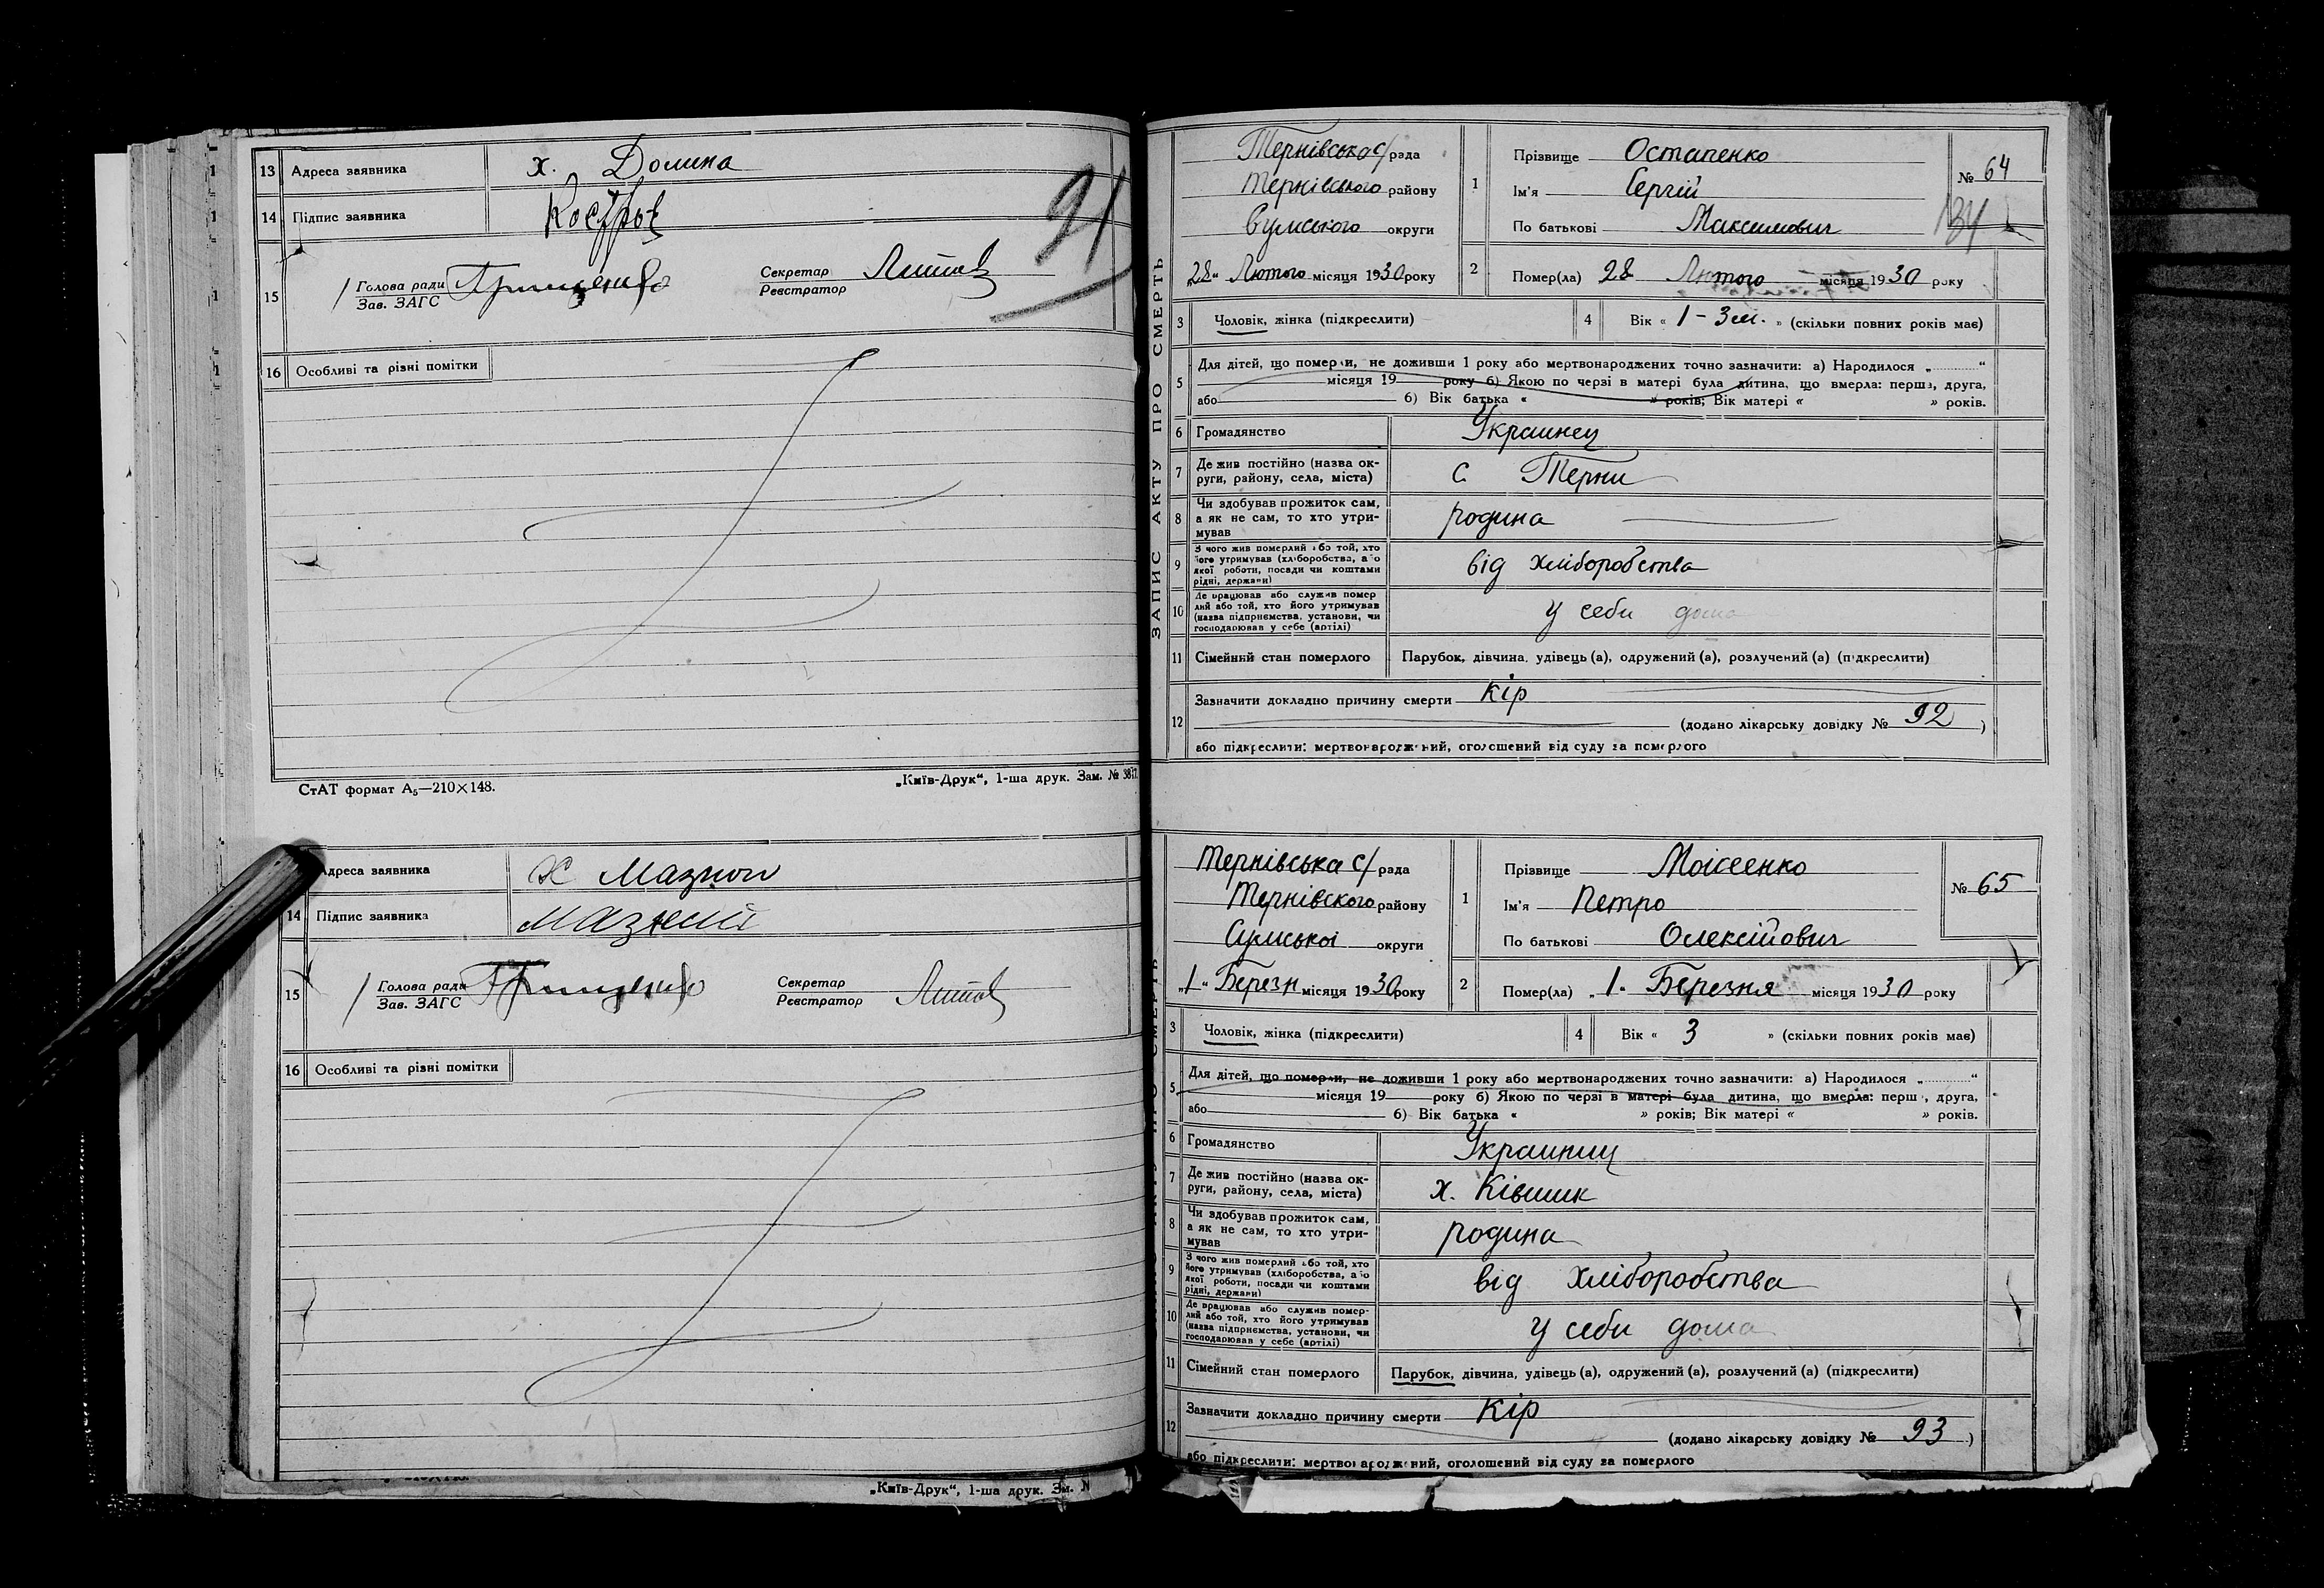 13 Адреса заявника х. Долина
14 Підпис заявника
91
15 Голова ради Секретар
Зав. ЗАГС Реєстратор
16 Особливі та різні помітки
СтАТ формат А₅—210×148. „Київ-Друк“, 1-ша друк. Зам. №
Адреса заявника х
14 Підпис заявника
15 Голова ради Секретар
Зав. ЗАГС Реєстратор
16 Особливі та різні помітки
„Київ-Друк“, 1-ша друк. Зм. N
ЗАПИС АКТУ ПРО СМЕРТЬ
Тернівська с/рада
Тернівського району
Сумського округи
„28“ Лютого місяця 1930 року
1 Прізвище Остапенко
Ім'я Сергій
По батькові Максимович
№ 64
134
2 Помер(ла) 28 Лютого місяця 1930 року
3 Чоловік, жінка (підкреслити) 4 Вік « 1 - 3 м. » (скільки повних років має)
5 Для дітей, що померли, не доживши 1 року або мертвонароджених точно зазначити: а) Народилося „ “
місяця 19 року б) Якою по черзі в матері була дитина, що вмерла: перша, друга,
або б) Вік батька « » років; Вік матері « » років.
6 Громадянство Украинец
7 Де жив постійно (назва ок-
руги, району, села, міста) с Терни
8 Чи здобував прожиток сам,
а як не сам, то хто утри-
мував родина
9 З чого жив померлий або той, хто
його утримував (хліборобства, або
якої роботи, посади чи коштами
рідні, держави) від хліборобства
10 Де працював або служив помер
лий або той, хто його утримував
(назва підприємства, установи, чи
господарював у себе (артілі) у себи дома
11 Сімейний стан померлого Парубок, дівчина, удівець (а), одружений (а), розлучений (а) (підкреслити)
12 Зазначити докладно причину смерти Кір
(додано лікарську довідку № 92 )
або підкреслити: мертвонароджений, оголошений від суду за померлого
Тернівська с/рада
Тернівского району
Сумської округи
„1“ Березн місяця 1930 року
1 Прізвище Моісеенко
Ім'я Петро
По батькові Олексійович
№ 65
2 Помер(ла) „1. Березня місяця 1930 року
3 Чоловік, жінка (підкреслити) 4 Вік « 3 » (скільки повних років має)
5 Для дітей, що померли, не доживши 1 року або мертвонароджених точно зазначити: а) Народилося „ “
місяця 19 року б) Якою по черзі в матері була дитина, що вмерла: перш , друга,
або б) Вік батька « » років; Вік матері « » років.
6 Громадянство
7 Де жив постійно (назва ок-
руги, району, села, міста) х. Ківшик
8 Чи здобував прожиток сам,
а як не сам, то хто утри-
мував родина
9 З чого жив померлий або той, хто
його утримував (хліборобства, або
якої роботи, посади чи коштами
рідні, держави) від хліборобства
10 Де працював або служив помер-
лий або той, хто його утримував
(назва підприємства, установи, чи
господарював у себе (артілі) у себи дома
11 Сімейний стан померлого Парубок, дівчина, удівець (а), одружений (а), розлучений (а) (підкреслити)
12 Зазначити докладно причину смерти Кір
(додано лікарську довідку № 93 )
або підкреслити: мертвонароджений, оголошений від суду за померлого